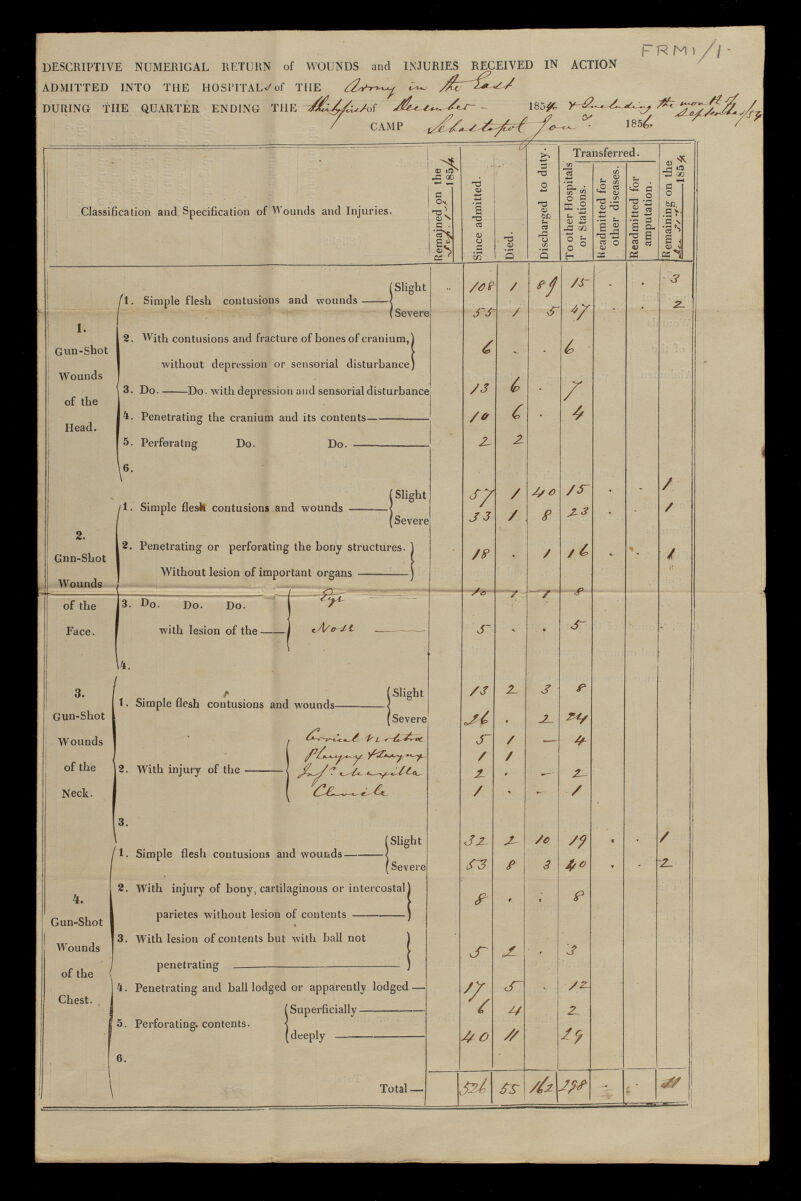 FRM1/1.
DESCRIPTIVE NUMERIGAL RETURN of WOUNDS and INJURIES RECEIVED IN ACTION
ADMITTED INTO THE HOSPITALS of THE Army in the East
DURING THE QUARTER ENDING THE thirtyfirst of December - 1854. & Including the month of September/54
CAMP Sebastopol Jany. 1856.
Classification and Specification of Wounds and Injuries.
Remained on the Sep. 1st 1854
Since admitted.
Died.
Discharged to duty.
Transferred.
To other Hospitals or Stations.
Readmitted for other diseases.
Readmitted for amputation.
Remaining on the Dec 31st 1854
1. Gun-Shot Wounds of the Head.
1. Simple flesh contusions and wounds — Slight .. 108 1 89 15 . . 3
Severe 55 1 5 47 . . 2
2. With contusions and fracture of bones of cranium,
without depression or sensorial disturbance 6 . . 6
3. Do. — Do. with depression and sensorial disturbance 13 6 . 7
4. Penetrating the cranium and its contents — 10 6 . 4
5. Perforatng Do. Do. — 2 2
6.
2. Gnn-Shot Wounds of the Face.
1. Simple flesh contusions and wounds — Slight 57 1 40 15 . . 1
Severe 33 1 8 23 . . 1
2. Penetrating or perforating the bony structures.
Without lesion of important organs — 18 . 1 16 . . 1
3. Do. Do. Do. Eye 10 1 1 8
with lesion of the — Nose 5 . . 5
4.
3. Gun-Shot Wounds of the Neck.
1. Simple flesh contusions and wounds — Slight 13 2 3 8
Severe 26 . 2 24
Cervical Vertebræ 5 1 — 4
Pharynx & Larynx 1 1
2. With injury of the — Infr. Maxilla 2 . — 2
Clavicle 1 . — 1
3.
4. Gun-Shot Wounds of the Chest.
1. Simple flesh contusions and wounds — Slight 32 2 10 19 . . 1
Severe 53 8 3 40 . . 2
2. With injury of bony, cartilaginous or intercostal
parietes without lesion of contents — 8 . . 8
3. With lesion of contents but with ball not
penetrating — 5 2 . 3
4. Penetrating and ball lodged or apparently lodged — 17 5 . 12
5. Perforating. contents. Superficially — 6 4 2
deeply — 40 11 29
6.
Total — 526 55 162 298 . . 11